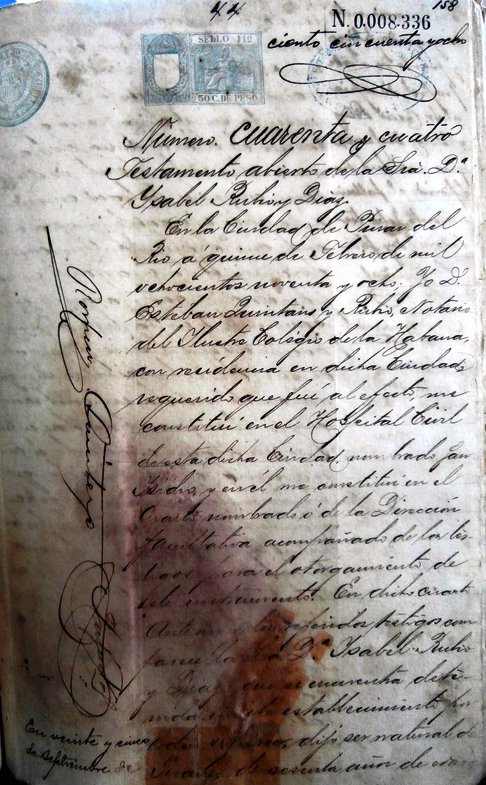 44
158
N. 0.008.336
ciento cincuenta y ocho
SELLO 11º
50 C. DE PESO
Número. cuarenta y cuatro
Testamento abierto de la Sra. Dª
Ysabel Rubio y Diaz.
En la Ciudad de Pinar del
Rio á quince de Febrero de mil
ochocientos noventa y ocho: Yo D.
Esteban Quintans y Rubio, Notario
del Ilustre Colégio de la Habana,
con residencia en dicha Ciudad,
requerido que fuí al efecto, me
constituí en el Hospital Civil
de esta dicha Ciudad nombrado San
Isidro, y en el me constituí en el
Cuarto nombrado de la Dirección
facultativa acompañado de los tes-
tigos para el otorgamiento de
este instrumento. En dicho cuarto
Ante mi y los testigos com-
parece la Sra. Dª Isabel Rubio
y Diaz, que se encuentra dete-
nida en este establecimiento por
dijo ser natural de
de sesenta años de
En veinte y cinco
de Septiembre de